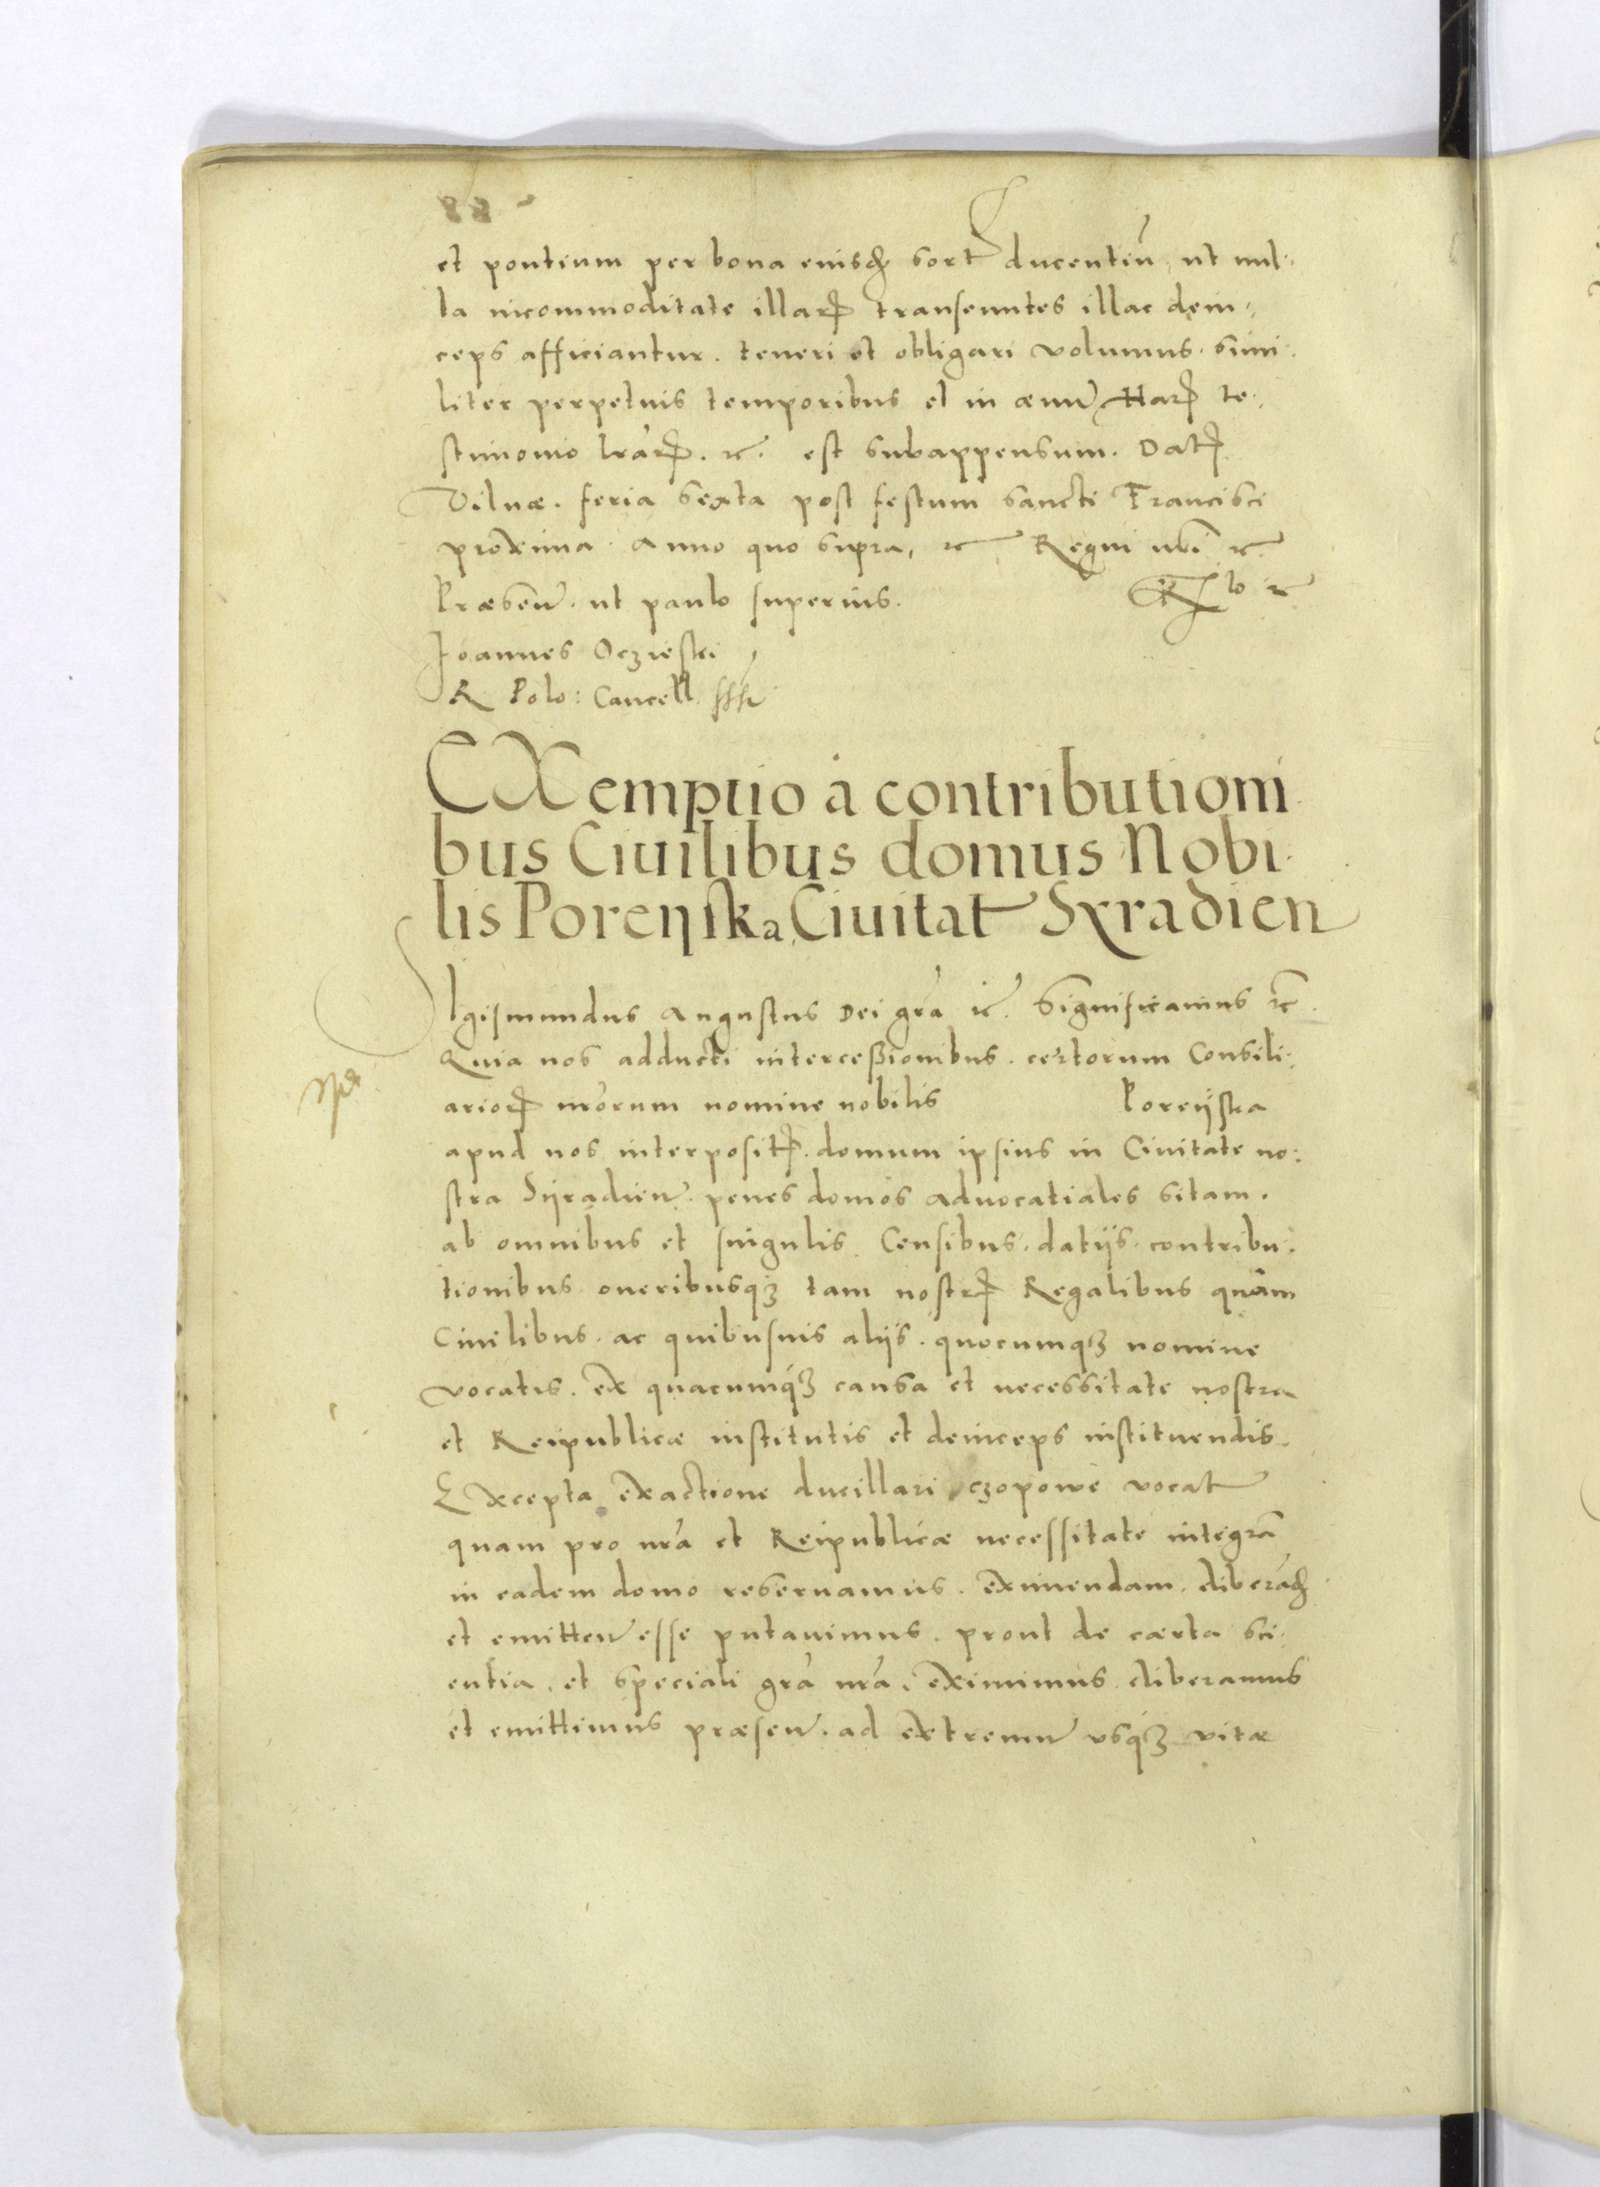 et pontium per bona eiusdem sort ducentiu ut nul
la incommoditate illarum transeuntes illac dein
ceps afficiantur. teneri et obligari volumus. simi
liter perpetuis temporibus et in æuum Harum te
stimonio lrarum. rc. est subappensum. Dat
Vilnæ. feria sexta post festum sancti Francisci
proxima. Anno quo supra, rc Regni ubi rc
Præsen. ut paulo superius.
Joannes Oczieski
R Polo: Cancell sssit
EXemptio à contributioni
bus Ciuilibus domus Nobi
lis Porenska, Ciuitat Syradien
SIgismundus Augustus Dei gra rc. Significamus rc.
Quia nos adducti interceßionibus. certorum Consili
ariorum nrorum nomine nobilis Poreÿska
apud nos interposit. domum ipsius in Ciuitate no:
stra Sÿradien. penes domos aduocatiales sitam.
ab omnibus et singulis Censibus. datÿs. contribu
tionibus oneribusq3 tam nostris Regalibus quàm
Ciuilibus. ac quibusuis alÿs. quocumq3 nomine
vocatis. ex quacumq3 causa et necessitate nostra
et Reipublicæ institutis et deinceps instituendis.
Excepta exactione ducillari czopowe vocat
quam pro nra et Reipublicæ necessitate integra
in eadem domo reseruamus. eximendam. liberand
et emitten esse putauimus. prout de certa sci
entia. et speciali gra nra. eximimus liberamus
et emittimus præsen. ad extremu usq3 vitæ